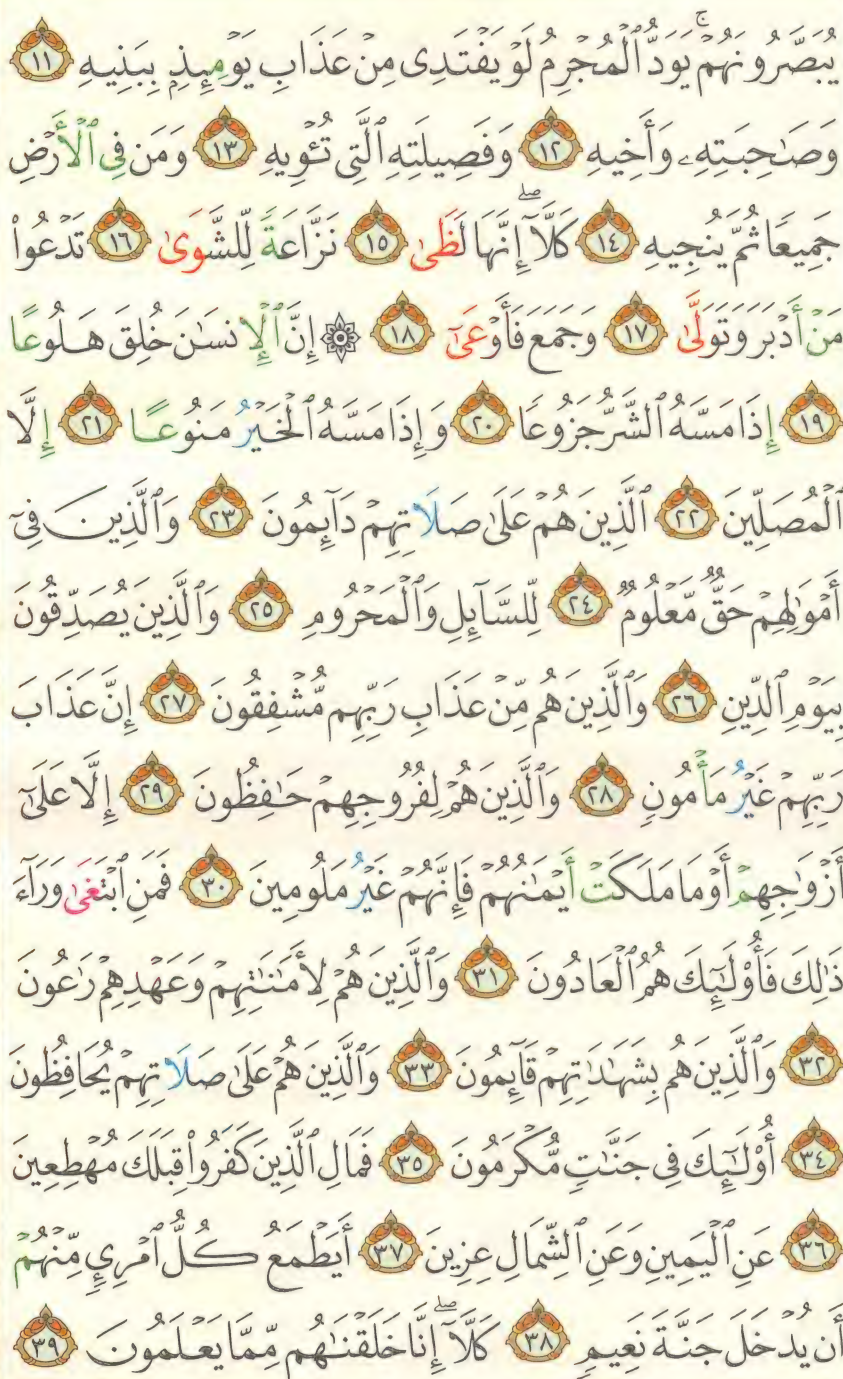 يُبَصَّرُونَهُمْ ۚ يَوَدُّ ٱلْمُجْرِمُ لَوْ يَفْتَدِى مِنْ عَذَابِ يَوْمِئِذٍۭ بِبَنِيهِ ١١
وَصَـٰحِبَتِهِۦ وَأَخِيهِ ١٢ وَفَصِيلَتِهِ ٱلَّتِى تُـْٔوِيهِ ١٣ وَمَن فِى ٱلْأَرْضِ
جَمِيعًا ثُمَّ يُنجِيهِ ١٤ كَلَّآ ۖ إِنَّهَا لَظَىٰ ١٥ نَزَّاعَةً لِّلشَّوَىٰ ١٦ تَدْعُوا۟
مَنْ أَدْبَرَ وَتَوَلَّىٰ ١٧ وَجَمَعَ فَأَوْعَىٰٓ ١٨ ۞ إِنَّ ٱلْإِنسَـٰنَ خُلِقَ هَلُوعًا
١٩ إِذَا مَسَّهُ ٱلشَّرُّ جَزُوعًا ٢٠ وَإِذَا مَسَّهُ ٱلْخَيْرُ مَنُوعًا ٢١ إِلَّا
ٱلْمُصَلِّينَ ٢٢ ٱلَّذِينَ هُمْ عَلَىٰ صَلَاتِهِمْ دَآئِمُونَ ٢٣ وَٱلَّذِينَ فِىٓ
أَمْوَٰلِهِمْ حَقٌّ مَّعْلُومٌ ٢٤ لِّلسَّآئِلِ وَٱلْمَحْرُومِ ٢٥ وَٱلَّذِينَ يُصَدِّقُونَ
بِيَوْمِ ٱلدِّينِ ٢٦ وَٱلَّذِينَ هُم مِّنْ عَذَابِ رَبِّهِم مُّشْفِقُونَ ٢٧ إِنَّ عَذَابَ
رَبِّهِمْ غَيْرُ مَأْمُونٍ ٢٨ وَٱلَّذِينَ هُمْ لِفُرُوجِهِمْ حَـٰفِظُونَ ٢٩ إِلَّا عَلَىٰٓ
أَزْوَٰجِهِمْ أَوْ مَا مَلَكَتْ أَيْمَـٰنُهُمْ فَإِنَّهُمْ غَيْرُ مَلُومِينَ ٣٠ فَمَنِ ٱبْتَغَىٰ وَرَآءَ
ذَٰلِكَ فَأُو۟لَـٰٓئِكَ هُمُ ٱلْعَادُونَ ٣١ وَٱلَّذِينَ هُمْ لِأَمَـٰنَـٰتِهِمْ وَعَهْدِهِمْ رَٰعُونَ
٣٢ وَٱلَّذِينَ هُم بِشَهَـٰدَٰتِهِمْ قَآئِمُونَ ٣٣ وَٱلَّذِينَ هُمْ عَلَىٰ صَلَاتِهِمْ يُحَافِظُونَ
٣٤ أُو۟لَـٰٓئِكَ فِى جَنَّـٰتٍ مُّكْرَمُونَ ٣٥ فَمَالِ ٱلَّذِينَ كَفَرُوا۟ قِبَلَكَ مُهْطِعِينَ
٣٦ عَنِ ٱلْيَمِينِ وَعَنِ ٱلشِّمَالِ عِزِينَ ٣٧ أَيَطْمَعُ كُلُّ ٱمْرِئٍ مِّنْهُمْ
أَن يُدْخَلَ جَنَّةَ نَعِيمٍ ٣٨ كَلَّآ ۖ إِنَّا خَلَقْنَـٰهُم مِّمَّا يَعْلَمُونَ ٣٩